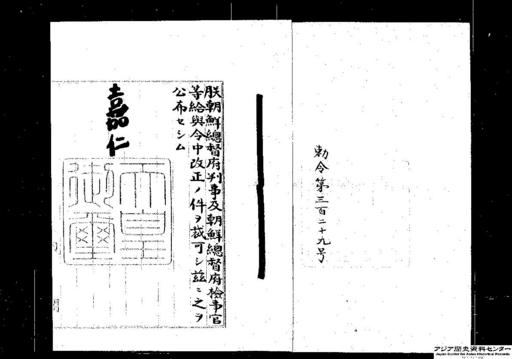 勅令第三百二十九号
朕朝鮮總督府判事及朝鮮總督府檢事官
等給與令中改正ノ件ヲ裁可シ茲ニ之ヲ
公布セシム
嘉仁
天皇
御璽
アジア歴史資料センター
Japan Center for Asian Historical Records